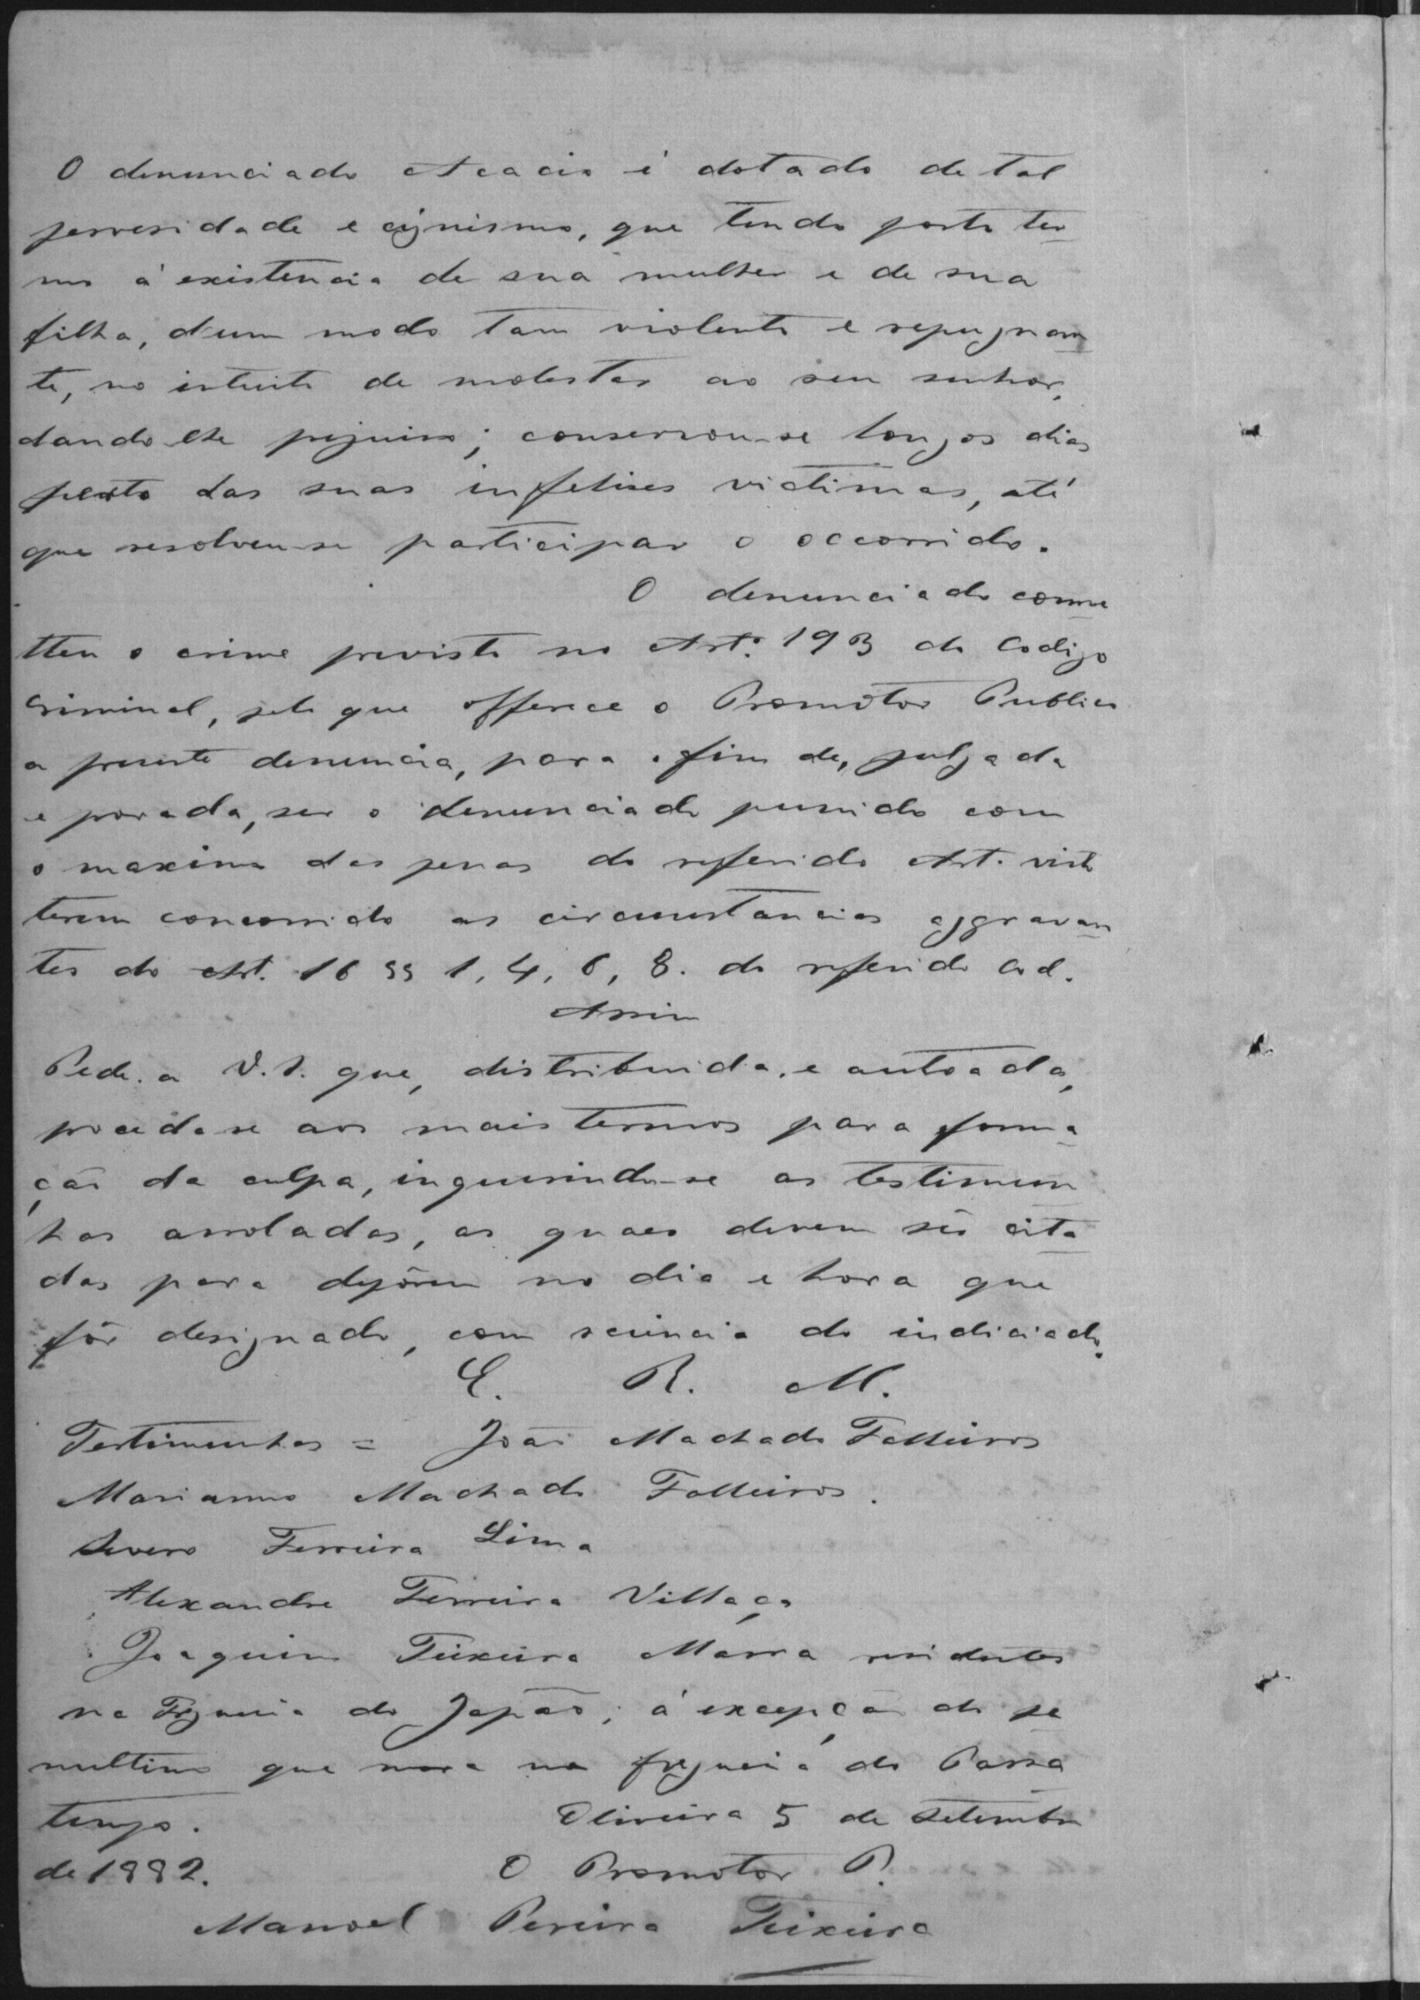 O denunciado Acacio é dotado de tal
perversidade e cynismo, que tendo posto ter-
mo á existencia de sua mulher e de sua
filha, d'um modo tam violento e repugnan-
te, no intuito de molestar ao seu senhor,
dando-lhe prejuiso; conservou-se longos dias
perto das suas infelises victimas, até
que resolveu-se participar o occorrido.
O denunciado comme
tteu o crime previsto no Art.º 193 do Codigo
Criminal, pelo que offerece o Promotor Publico
a presente denuncia, para o fim de, julgada
e provada, ser o denunciado punido com
o maximo das penas do referido Art. visto
terem concorrido as circumstancias aggravan-
tes do Art. 16 §§ 1, 4, 6, 8. do referido Cod.
Assim
Pede a V.S. que, distribuida e autoada,
proceda-se aos mais termos para forma-
ção da culpa, inquerindo-se as testimun
has arroladas, as quaes devem sêr cita-
das para depôrem no dia e hora que
fôr designado, com sciencia do indiciado.
E. R. M.
Testimunhas = João Machado Falleiros
Marianno Machado Falleiros.
Severo Ferreira Lima
Alexandre Ferreira Villaça
Joaquim Teixeira Marra residentes
na Freguesia do Japão, á excepção do pe
nultimo que mora na freguesia do Passa
tempo. Oliveira 5 de Setembro
de 1882. O Promotor P.
Manoel Pereira Teixeira